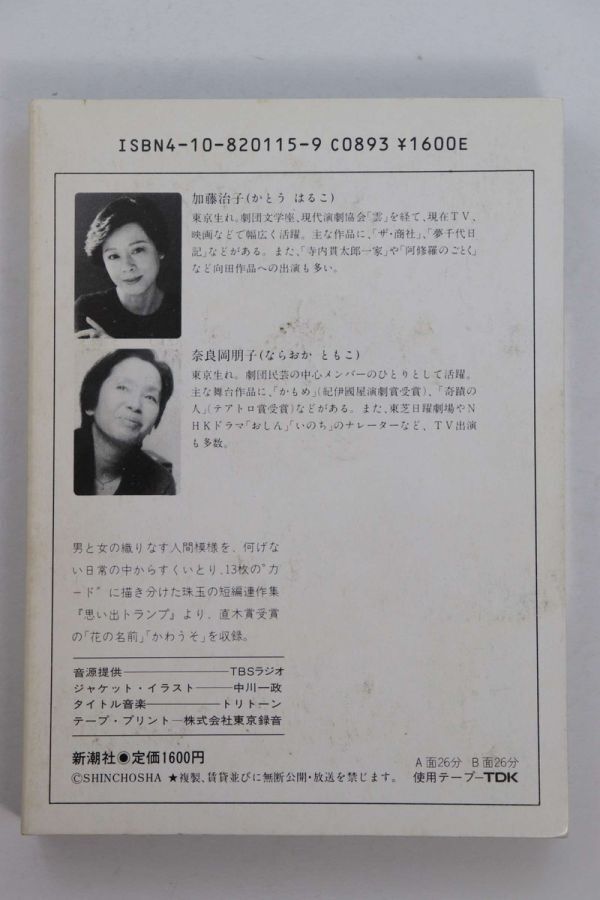 ISBN4-10-820115-9 C0893 ¥1600E
加藤治子(かとう はるこ)
東京生れ。劇団文学座、現代演劇協会「雲」を経て、現在TV、
映画などで幅広く活躍。主な作品に、「ザ・商社」、「夢千代日
記」などがある。また、「寺内貫太郎一家」や「阿修羅のごとく」
など向田作品への出演も多い。
奈良岡朋子(ならおか ともこ)
東京生れ。劇団民芸の中心メンバーのひとりとして活躍。
主な舞台作品に、「かもめ」(紀伊國屋演劇賞受賞)、「奇蹟の
人」(テアトロ賞受賞)などがある。また、東芝日曜劇場やN
HKドラマ「おしん」「いのち」のナレーターなど、TV出演
も多数。
男と女の織りなす人間模様を、何げな
い日常の中からすくいとり、13枚の“カ
ード”に描き分けた珠玉の短編連作集
『思い出トランプ』より、直木賞受賞
の「花の名前」「かわうそ」を収録。
音源提供―TBSラジオ
ジャケット・イラスト―中川一政
タイトル音楽―トリトーン
テープ・プリント―株式会社東京録音
新潮社●定価1600円
©SHINCHOSHA ★複製、賃貸並びに無断公開・放送を禁じます。
A面26分 B面26分
使用テープ―TDK